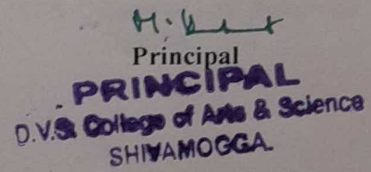 Principal
PRINCIPAL
D.V.S. College of Arts & Science
SHIVAMOGGA.